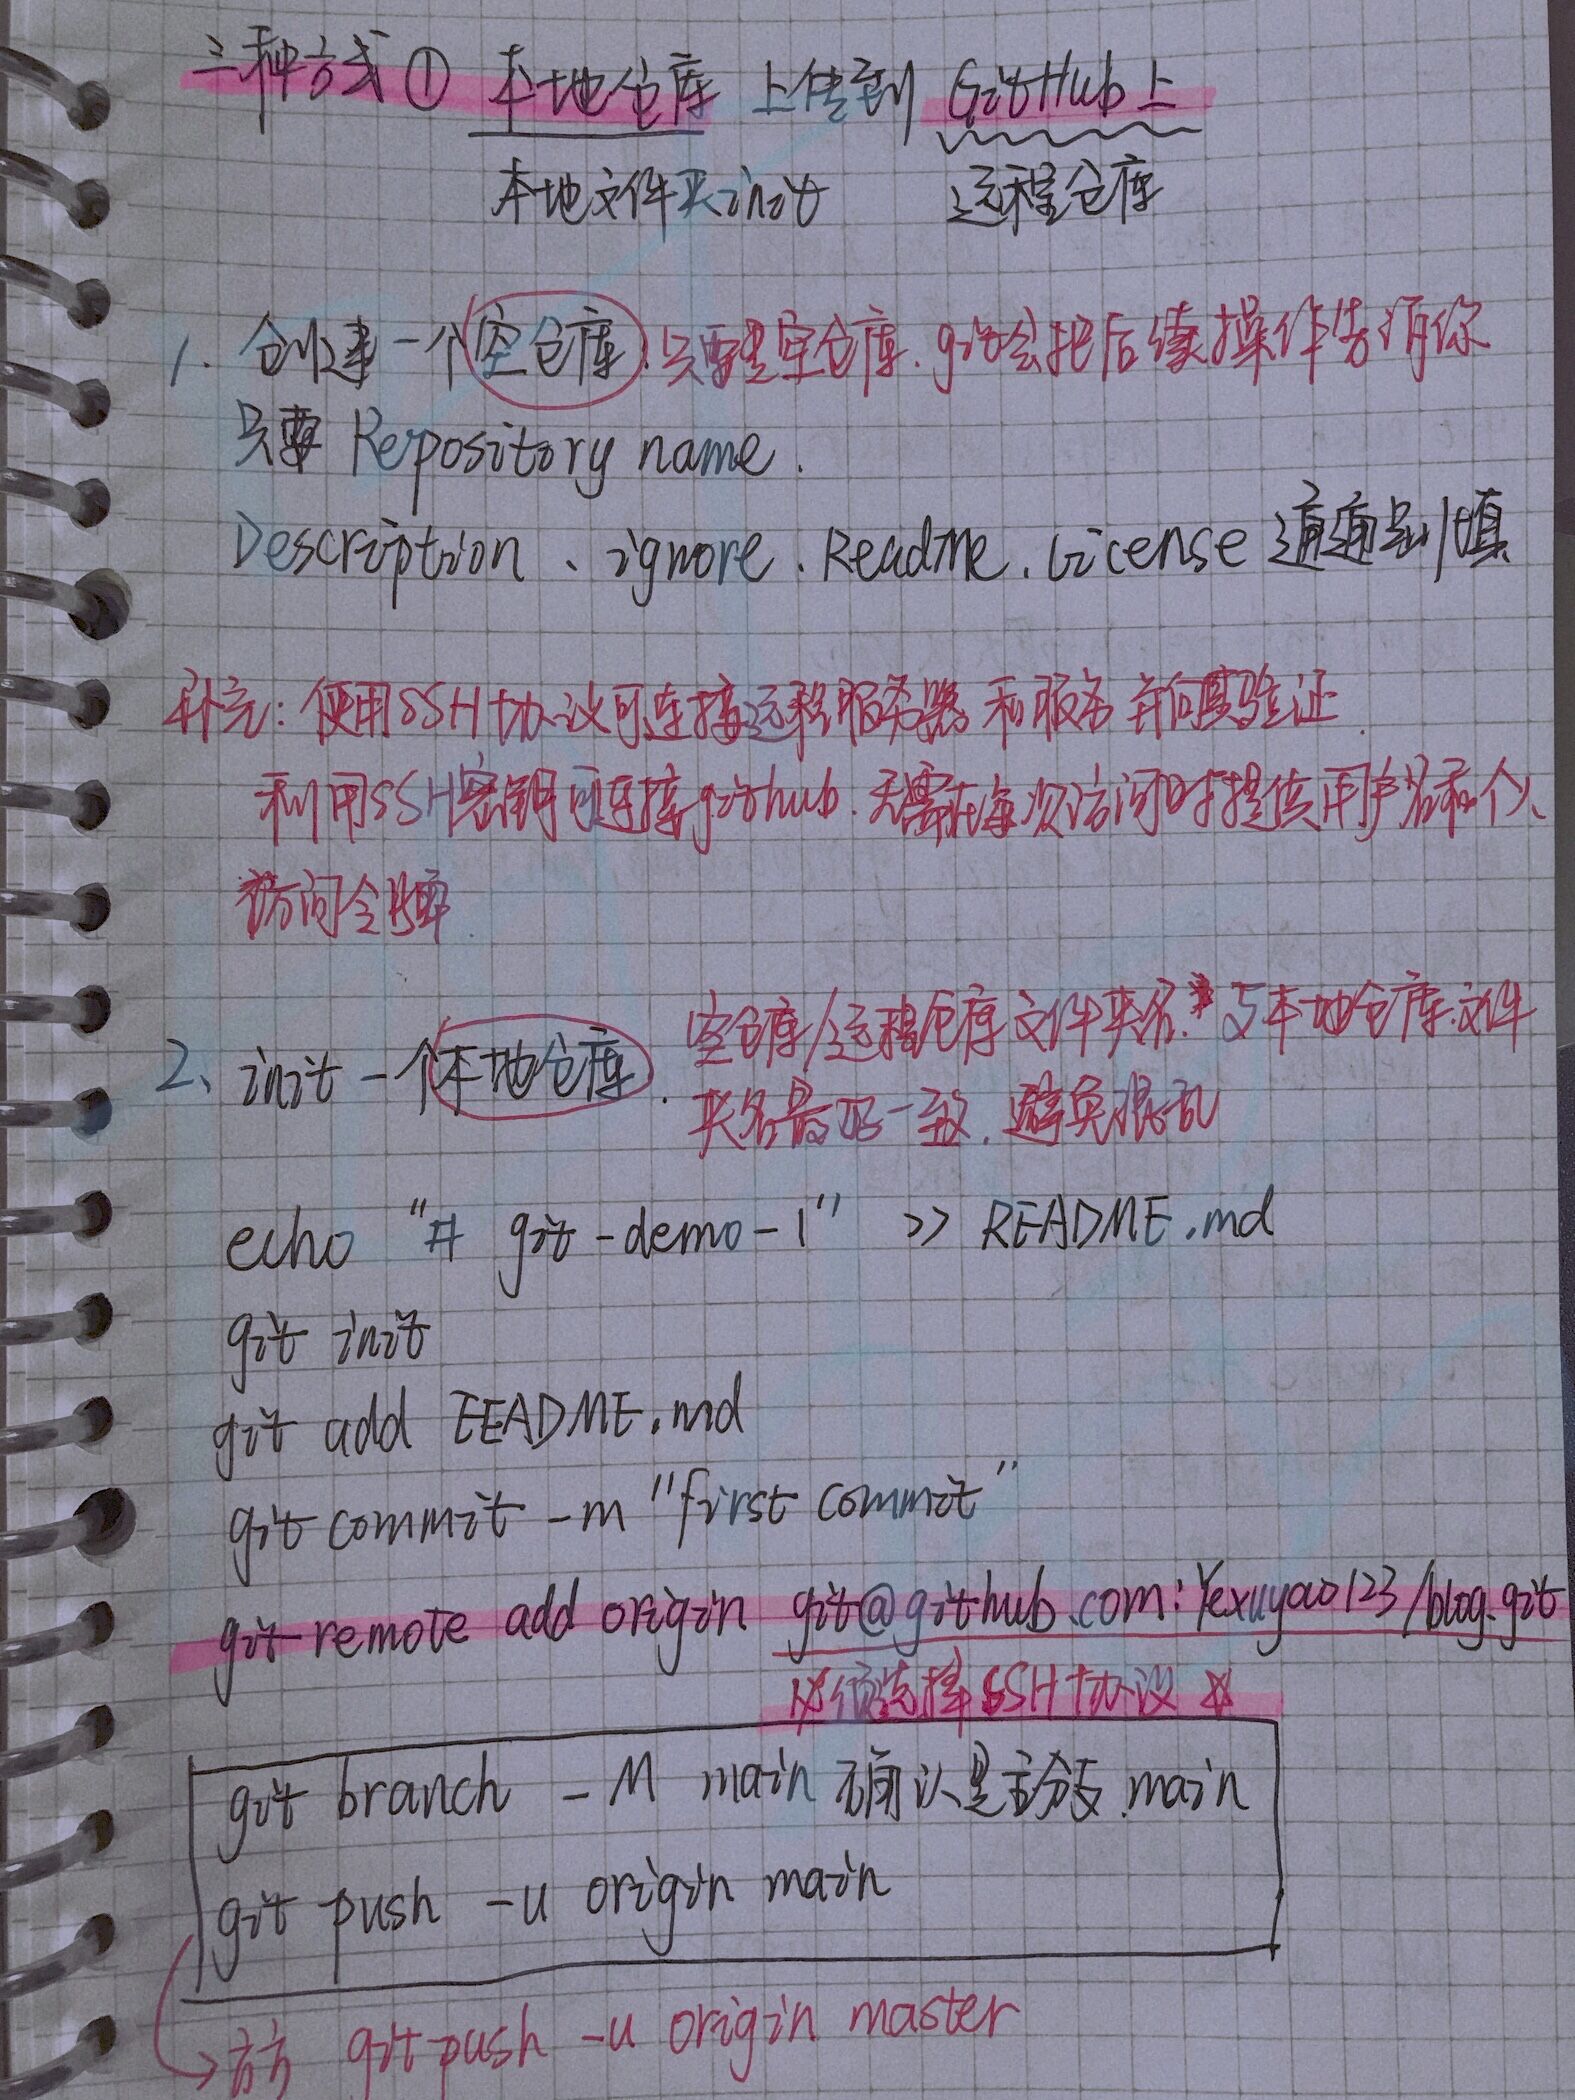 三种方式① 本地仓库 上传到 GitHub上
本地文件夹init 远程仓库
1. 创建一个空仓库. 只要是空仓库. git会把后续操作告诉你
只要 Repository name.
Description、ignore. Readme. License 通通别填
补充: 使用SSH协议可连接远程服务器 和服务 并向其验证.
利用SSH密钥可连接github. 无需在每次访问时提供用户名和个人
访问令牌.
2、init 一个本地仓库. 空仓库/远程仓库文件夹名 与本地仓库文件
夹名最好一致. 避免混乱
echo "# git-demo-1" >> README.md
git init
git add EEADME.md
git commit -m "first commit"
git remote add origin git@github.com:Yexuyao123/blog.git
必须选择SSH协议
git branch -M main 确认是主分支 main
git push -u origin main
git push -u origin master